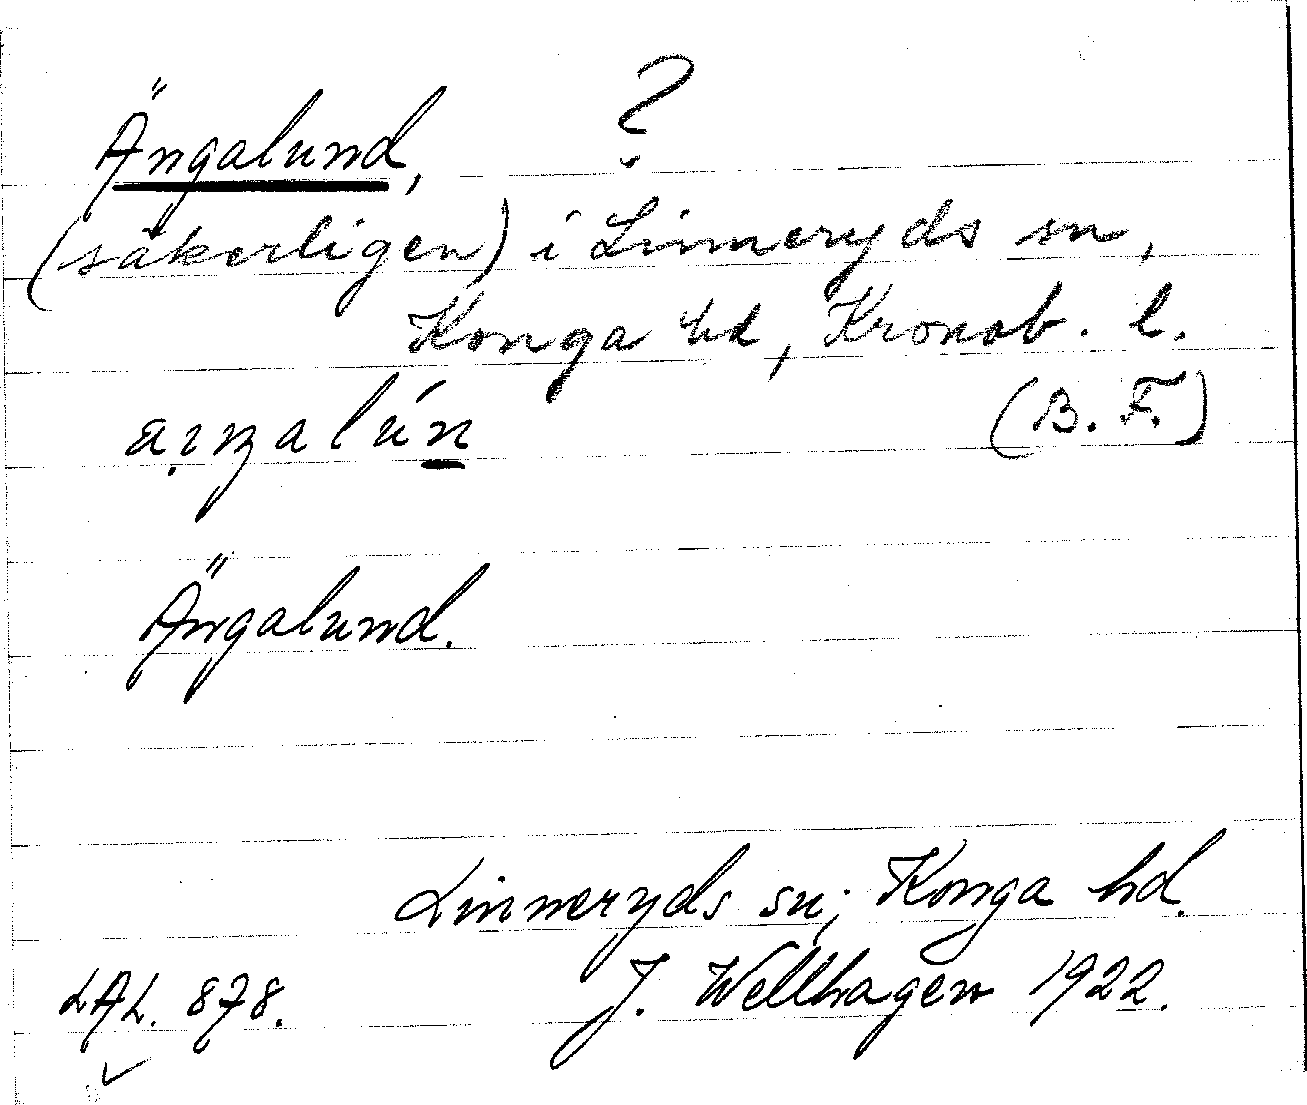 Ängalund, ?
(säkerligen) i Linneryds sn,
Konga hd, Kronob. l.
(B. F.)
Ängalund.
Linneryds sn; Konga hd.
LAL. 878. J. Wellhagen 1922.